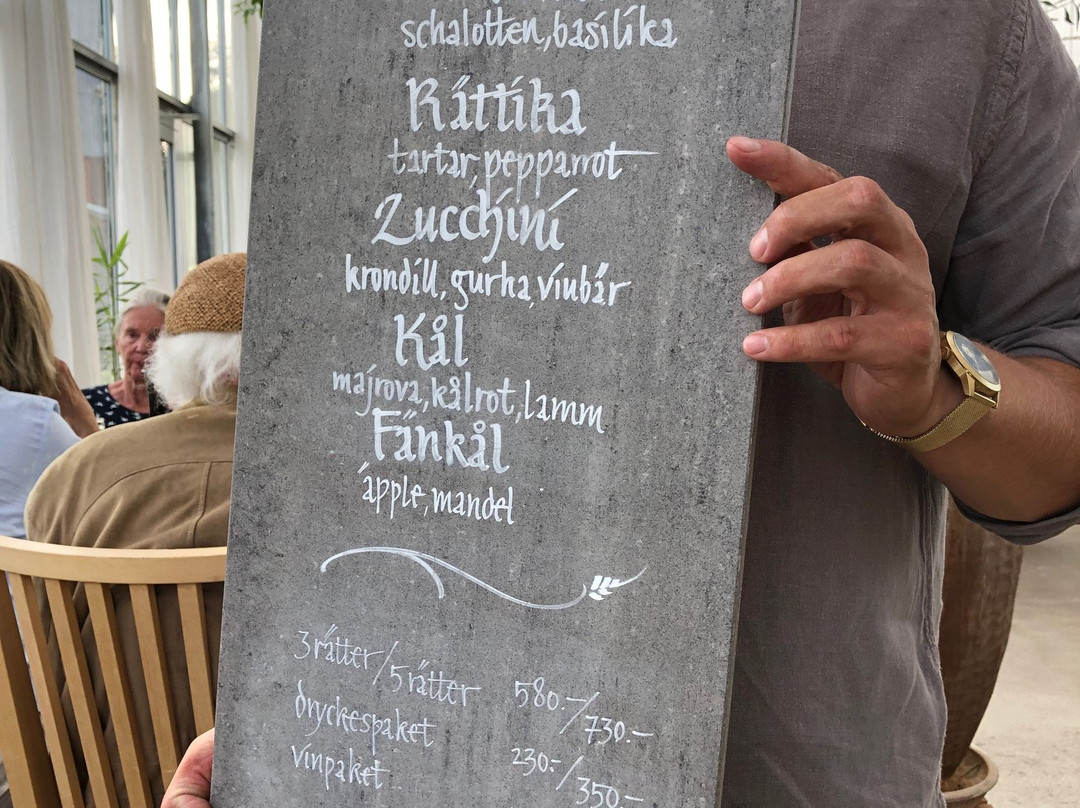 schalotten, basilika
Rättika
tartar, pepparrot
Zucchini
krondill, gurka, vinbär
Kål
majrova, kålrot, lamm
Fänkål
äpple, mandel
3 rätter/5 rätter 580.-/730.-
dryckespaket 230.-/350.-
vinpaket